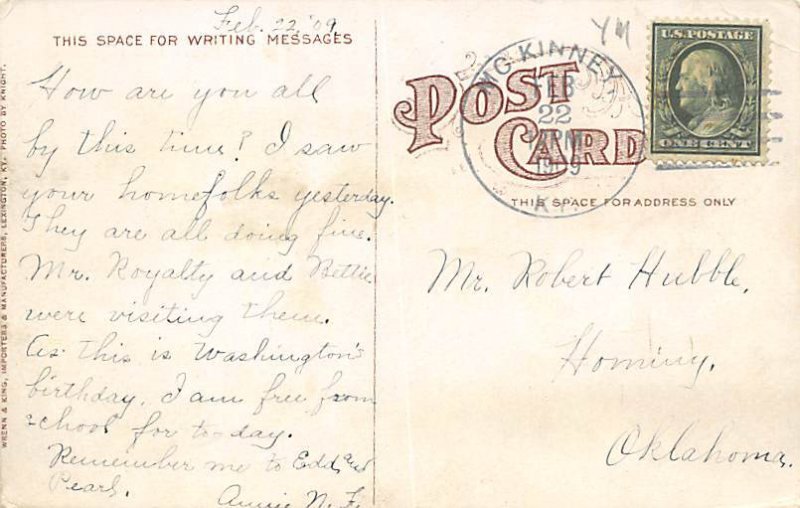 Feb. 22, '09
THIS SPACE FOR WRITING MESSAGES
How are you all
by this time? I saw
your homefolks yesterday.
They are all doing fine.
Mr. Royalty and Bettie
were visiting them.
As this is Washington's
birthday, I am free from
school for to-day.
Remember me to Edd and
Pearl.
Annie N. F.
WRENN & KING, IMPORTERS & MANUFACTURERS, LEXINGTON, KY. PHOTO BY KNIGHT.
YM
POST
CARD
MC KINNEY,
FEB
22
PM
1909
KY.
U.S. POSTAGE
ONE CENT
THIS SPACE FOR ADDRESS ONLY
Mr. Robert Hubble,
Hominy,
Oklahoma.